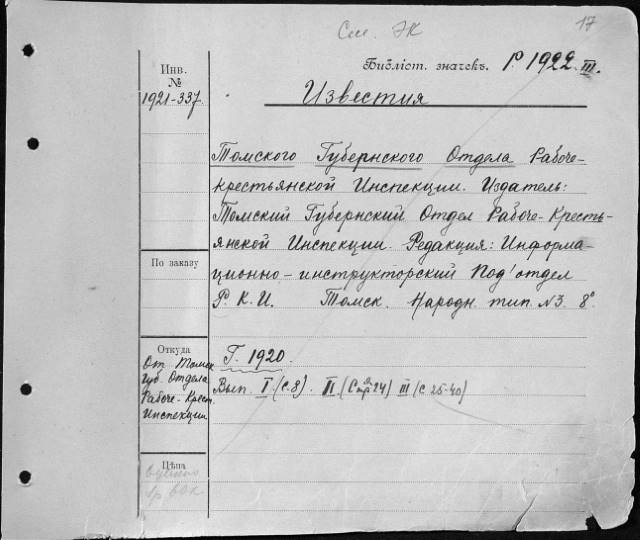 См. ЭК
17
Инв.
№
1921-337.
Библіот. значекъ. Р. 1922 III.
Известия
Томского Губернского Отдела Рабоче-
крестьянской Инспекции. Издатель:
Томский Губернский Отдел Рабоче-Кресть-
янской Инспекции. Редакция: Информа-
ционно-инструкторский Под'отдел
Р. К. И. Томск. Народн. тип. N3. 8°
По заказу
Откуда
От Томск.
Губ. Отдела
Рабоче-Крест.
Инспекции
Г. 1920.
Вып. I (с. 8). II (Стр 24) III (с 25-40)
Цѣна